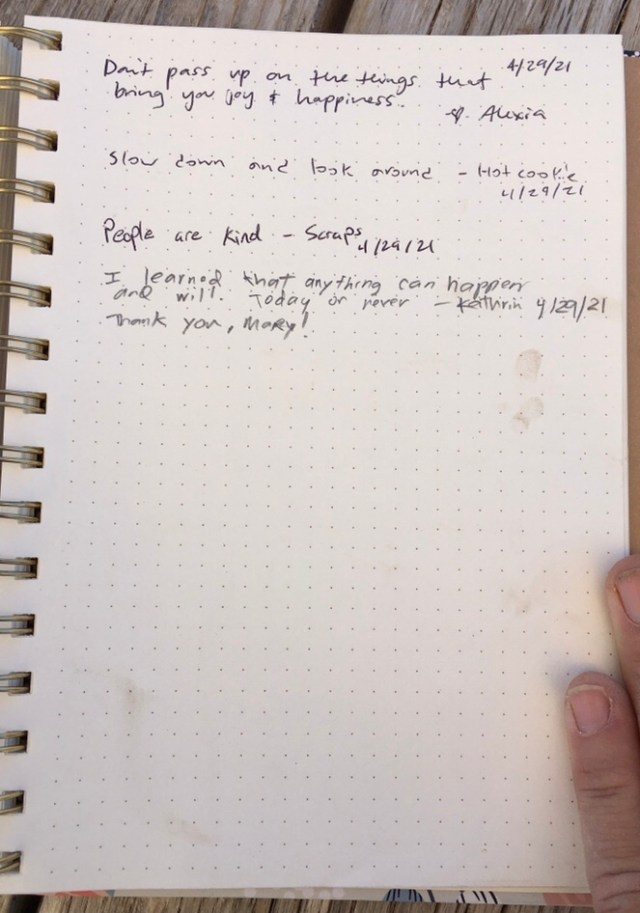 Don't pass up on the things that 4/29/21
bring you joy & happiness.
Alexia
Slow down and look around - Hot cookie
4/29/21
People are Kind - Scraps 4/29/21
I learned that anything can happen
and will. Today or never - Kathrin 4/29/21
Thank you, Mary!